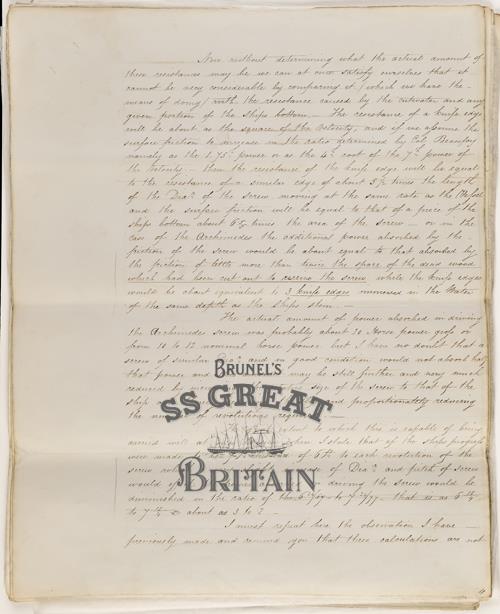 Now without determining what the actual amount of
these resistances may be we can at once satisfy ourselves that it
cannot be very considerable by comparing it (which we have the
means of doing) with the resistance caused by the cutwater and any
given portion of the Ships bottom — The resistance of a knife edge
will be about as the square of the Velocity, and if we assume the
surface friction to increase in the ratio determined by Col Beaufoy
namely as the 1.75 power or as the root of the 7th power of
the Velocity — then the resistance of the knife edge will be equal
to the resistance of a similar edge of about 5½ times the length
of the Diar of the screw moving at the same rate as the Vessel
and the surface friction will be equal to that of a piece of the
ships bottom about times the area of the screw — or in the
case of the Archimedes the additional power absorbed by the
friction of the screw would be about equal to that absorbed by
the friction of little more than twice the space of the dead wood
which had been cut out to receive the screw while the knife edges
would be about equivalent to 3 knife edges immersed in the Water
of the same depth as the Ships stem —
The actual amount of power absorbed in driving
the Archimedes screw was probably about 30 Horse power gross or
from 10 to 12 nominal horse power but I have no doubt that a
screw of similar and in good condition would not absorb half
that power and may be still further and very much
reduced by size of the screw to that of the
ship and proportionately reducing
the of revolutions —
BRUNEL'S
SS GREAT
BRITAIN
to which this is capable of being
carried will when I state that if the ships progress
were made of 6ft to each revolution of the
screw of Diar and pitch of screw
would driving the screw would be
diminished in the ratio of that is as
to about as 3 to 2 —
I must repeat here the observation I have
previously made and remind you that these calculations are not